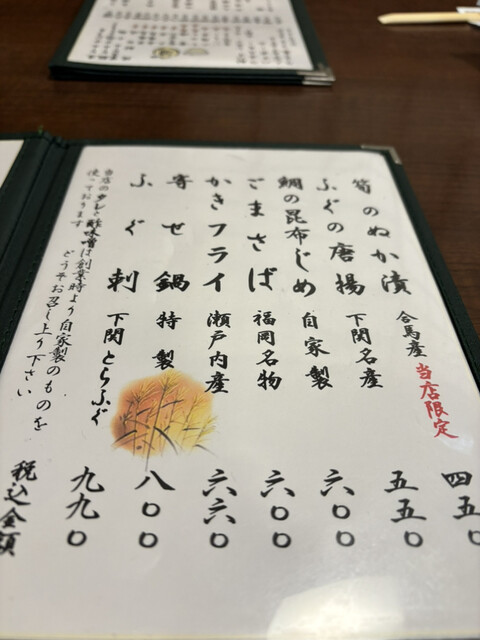 筍のぬか漬 合馬産 当店限定 四五〇
ふぐの唐揚 下関名産 五五〇
鯛の昆布じめ 自家製 六〇〇
ごまさば 福岡名物 六〇〇
かきフライ 瀬戸内産 六六〇
寄せ鍋 特製 八〇〇
ふぐ刺 下関とらふぐ 九九〇
当店のタレと酢味噌は創業時より自家製のものを
使っております どうぞお召し上り下さい
税込金額